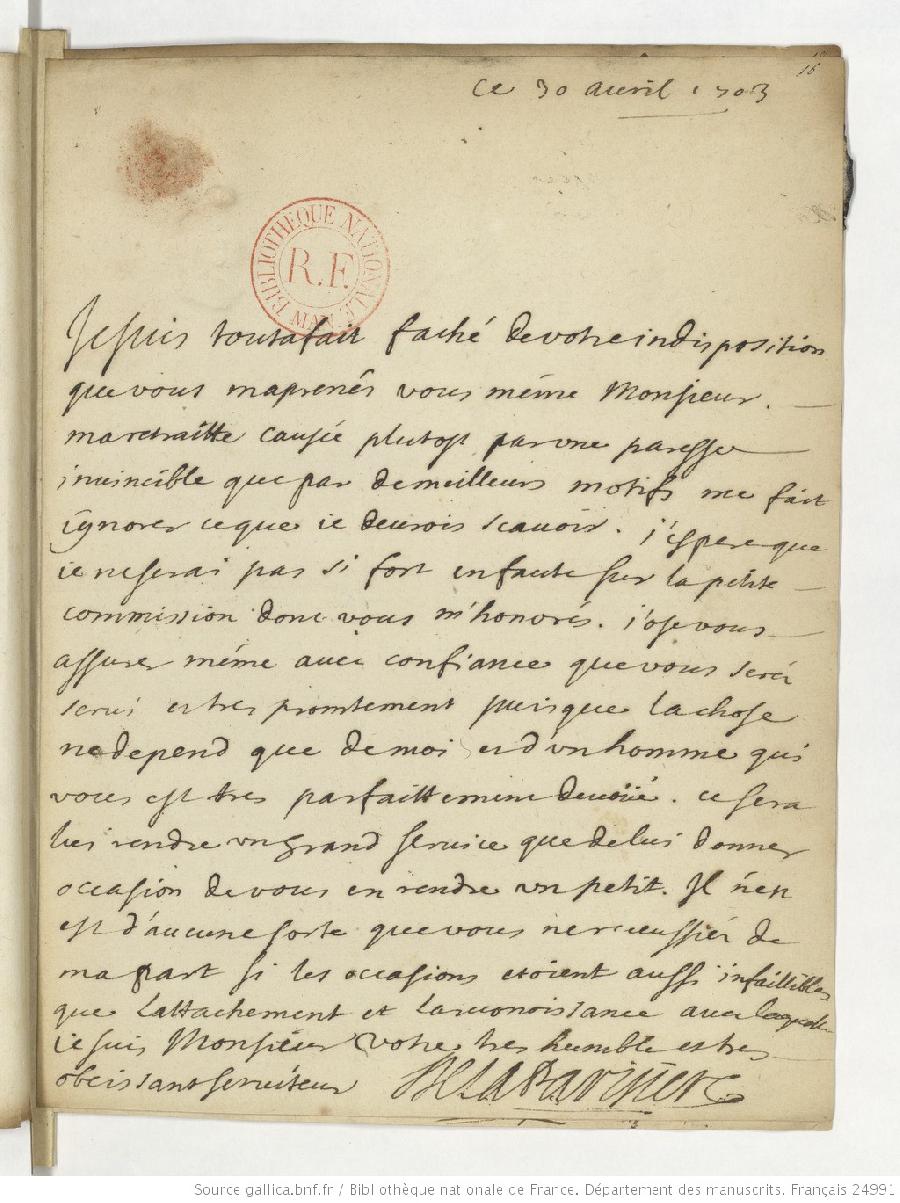 16
Ce 30 auril 1703
BIBLIOTHEQUE NATIONALE
R.F.
MAN
Je suis toutafait faché de votre indisposition
que vous maprenés vous méme Monsieur.
ma retraitte causée plutost par vne paresse
inuincible que par de meilleurs motifs me fait
ignorer ce que ie deurois scauoir. j'espere que
ie ne serai pas si fort en faute sur la petite
commission dont vous m'honorés. j'ose vous
assurer méme auec confiance que vous seréz
serui et tres promtement puisque la chose
ne depend que de moi et d'vn homme qui
vous est tres parfaittement deuoüé. ce sera
lui rendre vn grand seruice que de lui donner
occasion de vous en rendre vn petit. Il n'en
est d'aucune sorte que vous ne receussiés de
ma part si les occasions etoient aussi infaillibles
que Lattachement et La reconoissance auec laquelle
ie suis Monsieur Votre tres humble et tres
obeissant seruiteur De La
Source gallica.bnf.fr / Bibliothèque nationale de France. Département des manuscrits. Français 24991